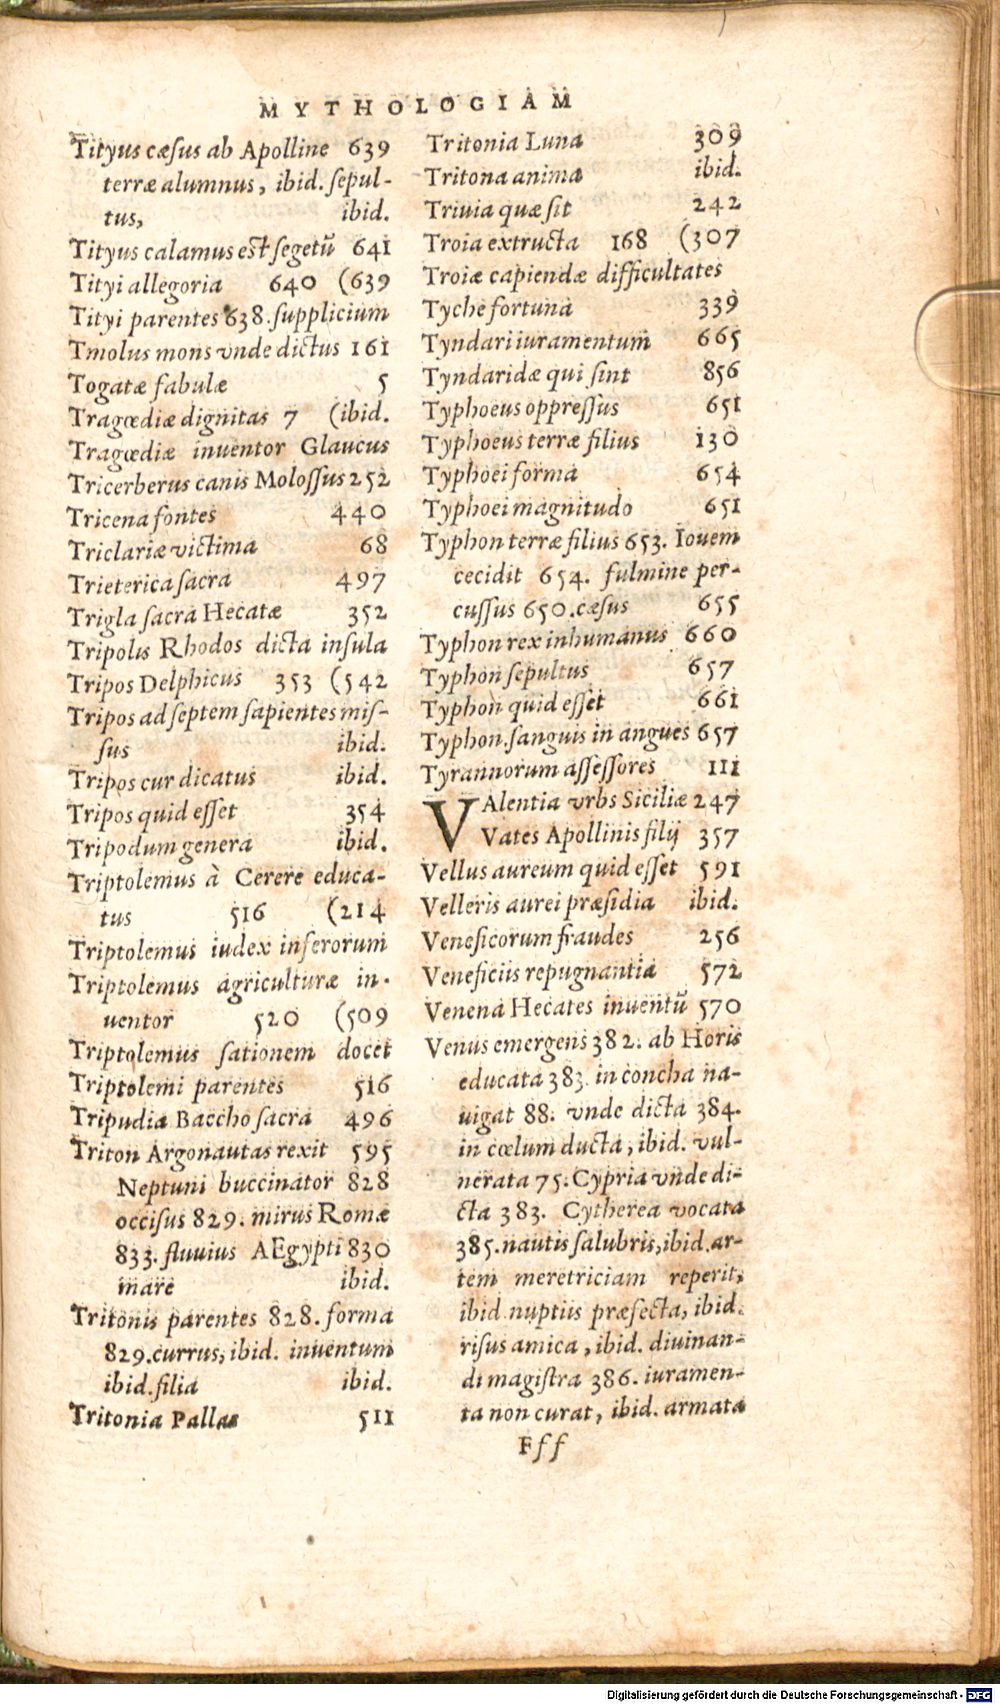 MYTHOLOGIAM
Tityus cæsus ab Apolline 639
terræ alumnus, ibid. ſepul-
tus, ibid.
Tityus calamus eſt ſegetū 641
Tityi allegoria 640 (639
Tityi parentes 638. ſupplicium
Tmolus mons vnde dictus 161
Togatæ fabulæ 5
Tragœdiæ dignitas 7 (ibid.
Tragœdiæ inuentor Glaucus
Tricerberus canis Moloſſus 252
Tricena fontes 440
Triclariæ victima 68
Trieterica ſacra 497
Trigla ſacra Hecatæ 352
Tripolis Rhodos dicta inſula
Tripos Delphicus 353 (542
Tripos ad ſeptem ſapientes miſ-
ſus ibid.
Tripos cur dicatus ibid.
Tripos quid eſſet 354
Tripodum genera ibid.
Triptolemus à Cerere educa-
tus 516 (214
Triptolemus iudex inferorum
Triptolemus agriculturæ in-
uentor 520 (509
Triptolemus ſationem docet
Triptolemi parentes 516
Tripudia Baccho ſacra 496
Triton Argonautas rexit 595
Neptuni buccinator 828
occiſus 829. mirus Romæ
833. fluuius AEgypti 830
mare ibid.
Tritonis parentes 828. forma
829. currus, ibid. inuentum
ibid. filia ibid.
Tritonia Pallas 511
Tritonia Luna 309
Tritona anima ibid.
Triuia quæ ſit 242
Troia extructa 168 (307
Troiæ capiendæ difficultates
Tyche fortuna 339
Tyndari iuramentum 665
Tyndaridæ qui ſint 856
Typhoeus oppreſſus 651
Typhoeus terræ filius 130
Typhoei forma 654
Typhoei magnitudo 651
Typhon terræ filius 653. Iouem
cecidit 654. fulmine per-
cuſſus 650. cæſus 655
Typhon rex inhumanus 660
Typhon ſepultus 657
Typhon quid eſſet 661
Typhon. ſanguis in angues 657
Tyrannorum aſſeſſores 111
VAlentia vrbs Siciliæ 247
Vates Apollinis filij 357
Vellus aureum quid eſſet 591
Velleris aurei præſidia ibid.
Veneficorum fraudes 256
Veneficiis repugnantia 572
Venena Hecates inuentū 570
Venus emergens 382. ab Horis
educata 383. in concha na-
uigat 88. vnde dicta 384.
in cœlum ducta, ibid. vul-
nerata 75. Cypria vnde di-
cta 383. Cytherea vocata
385. nautis ſalubris, ibid. ar-
tem meretriciam reperit,
ibid. nuptiis præfecta, ibid.
riſus amica, ibid. diuinan-
di magiſtra 386. iuramen-
ta non curat, ibid. armata
Fff
Digitalisierung gefördert durch die Deutsche Forschungsgemeinschaft - DFG